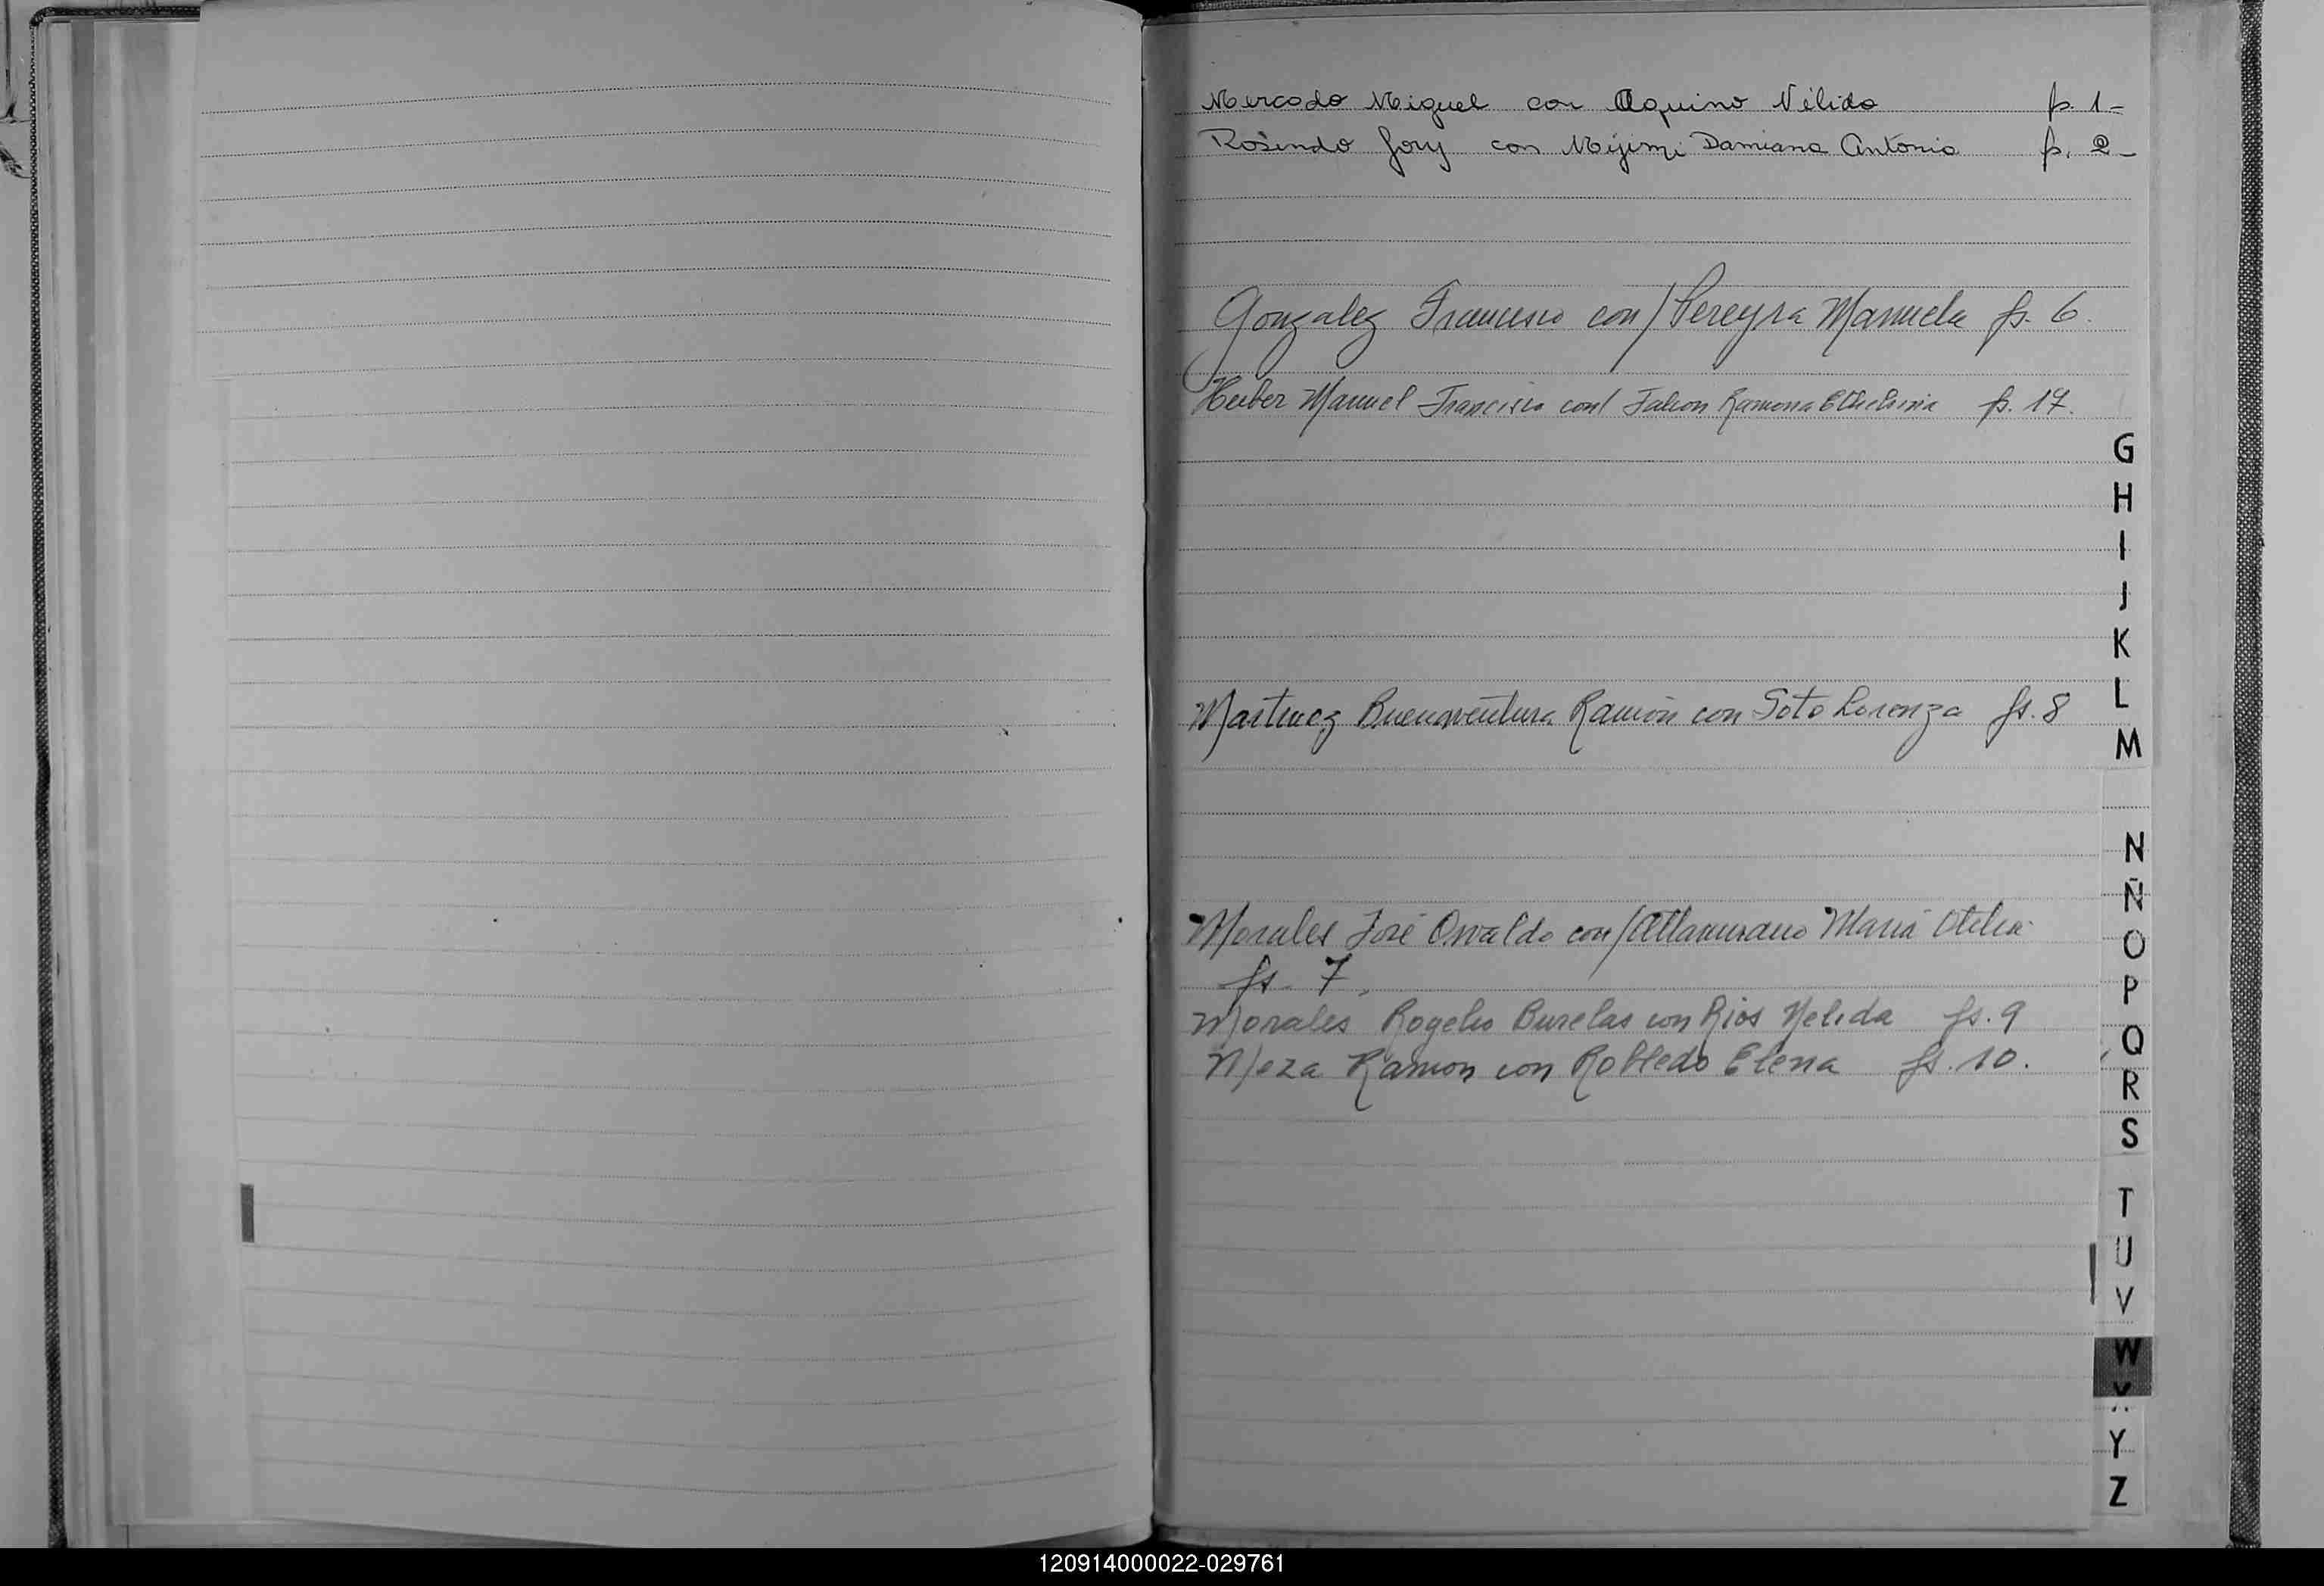 Mercado Miguel con Aquino Nélida fs. 1-
Rosendo Jory con Damiana Antonia fs. 2-
Gonzalez Francisco con/ Pereyra Manuela fs. 6.
Manuel Francisco con/ Falcon Ramona fs. 17.
G
H
I
J
K
L
Martinez Buenaventura Ramón con Soto Lorenza fs. 8
M
N
Ñ
Morales José Osvaldo con/ Altamirano María Otilia
O
fs. 7.
P
Morales Rogelio con Rios Nelida fs. 9
Q
Meza Ramon con Robledo Elena fs. 10.
R
S
T
U
V
W
X
Y
Z
120914000022-029761